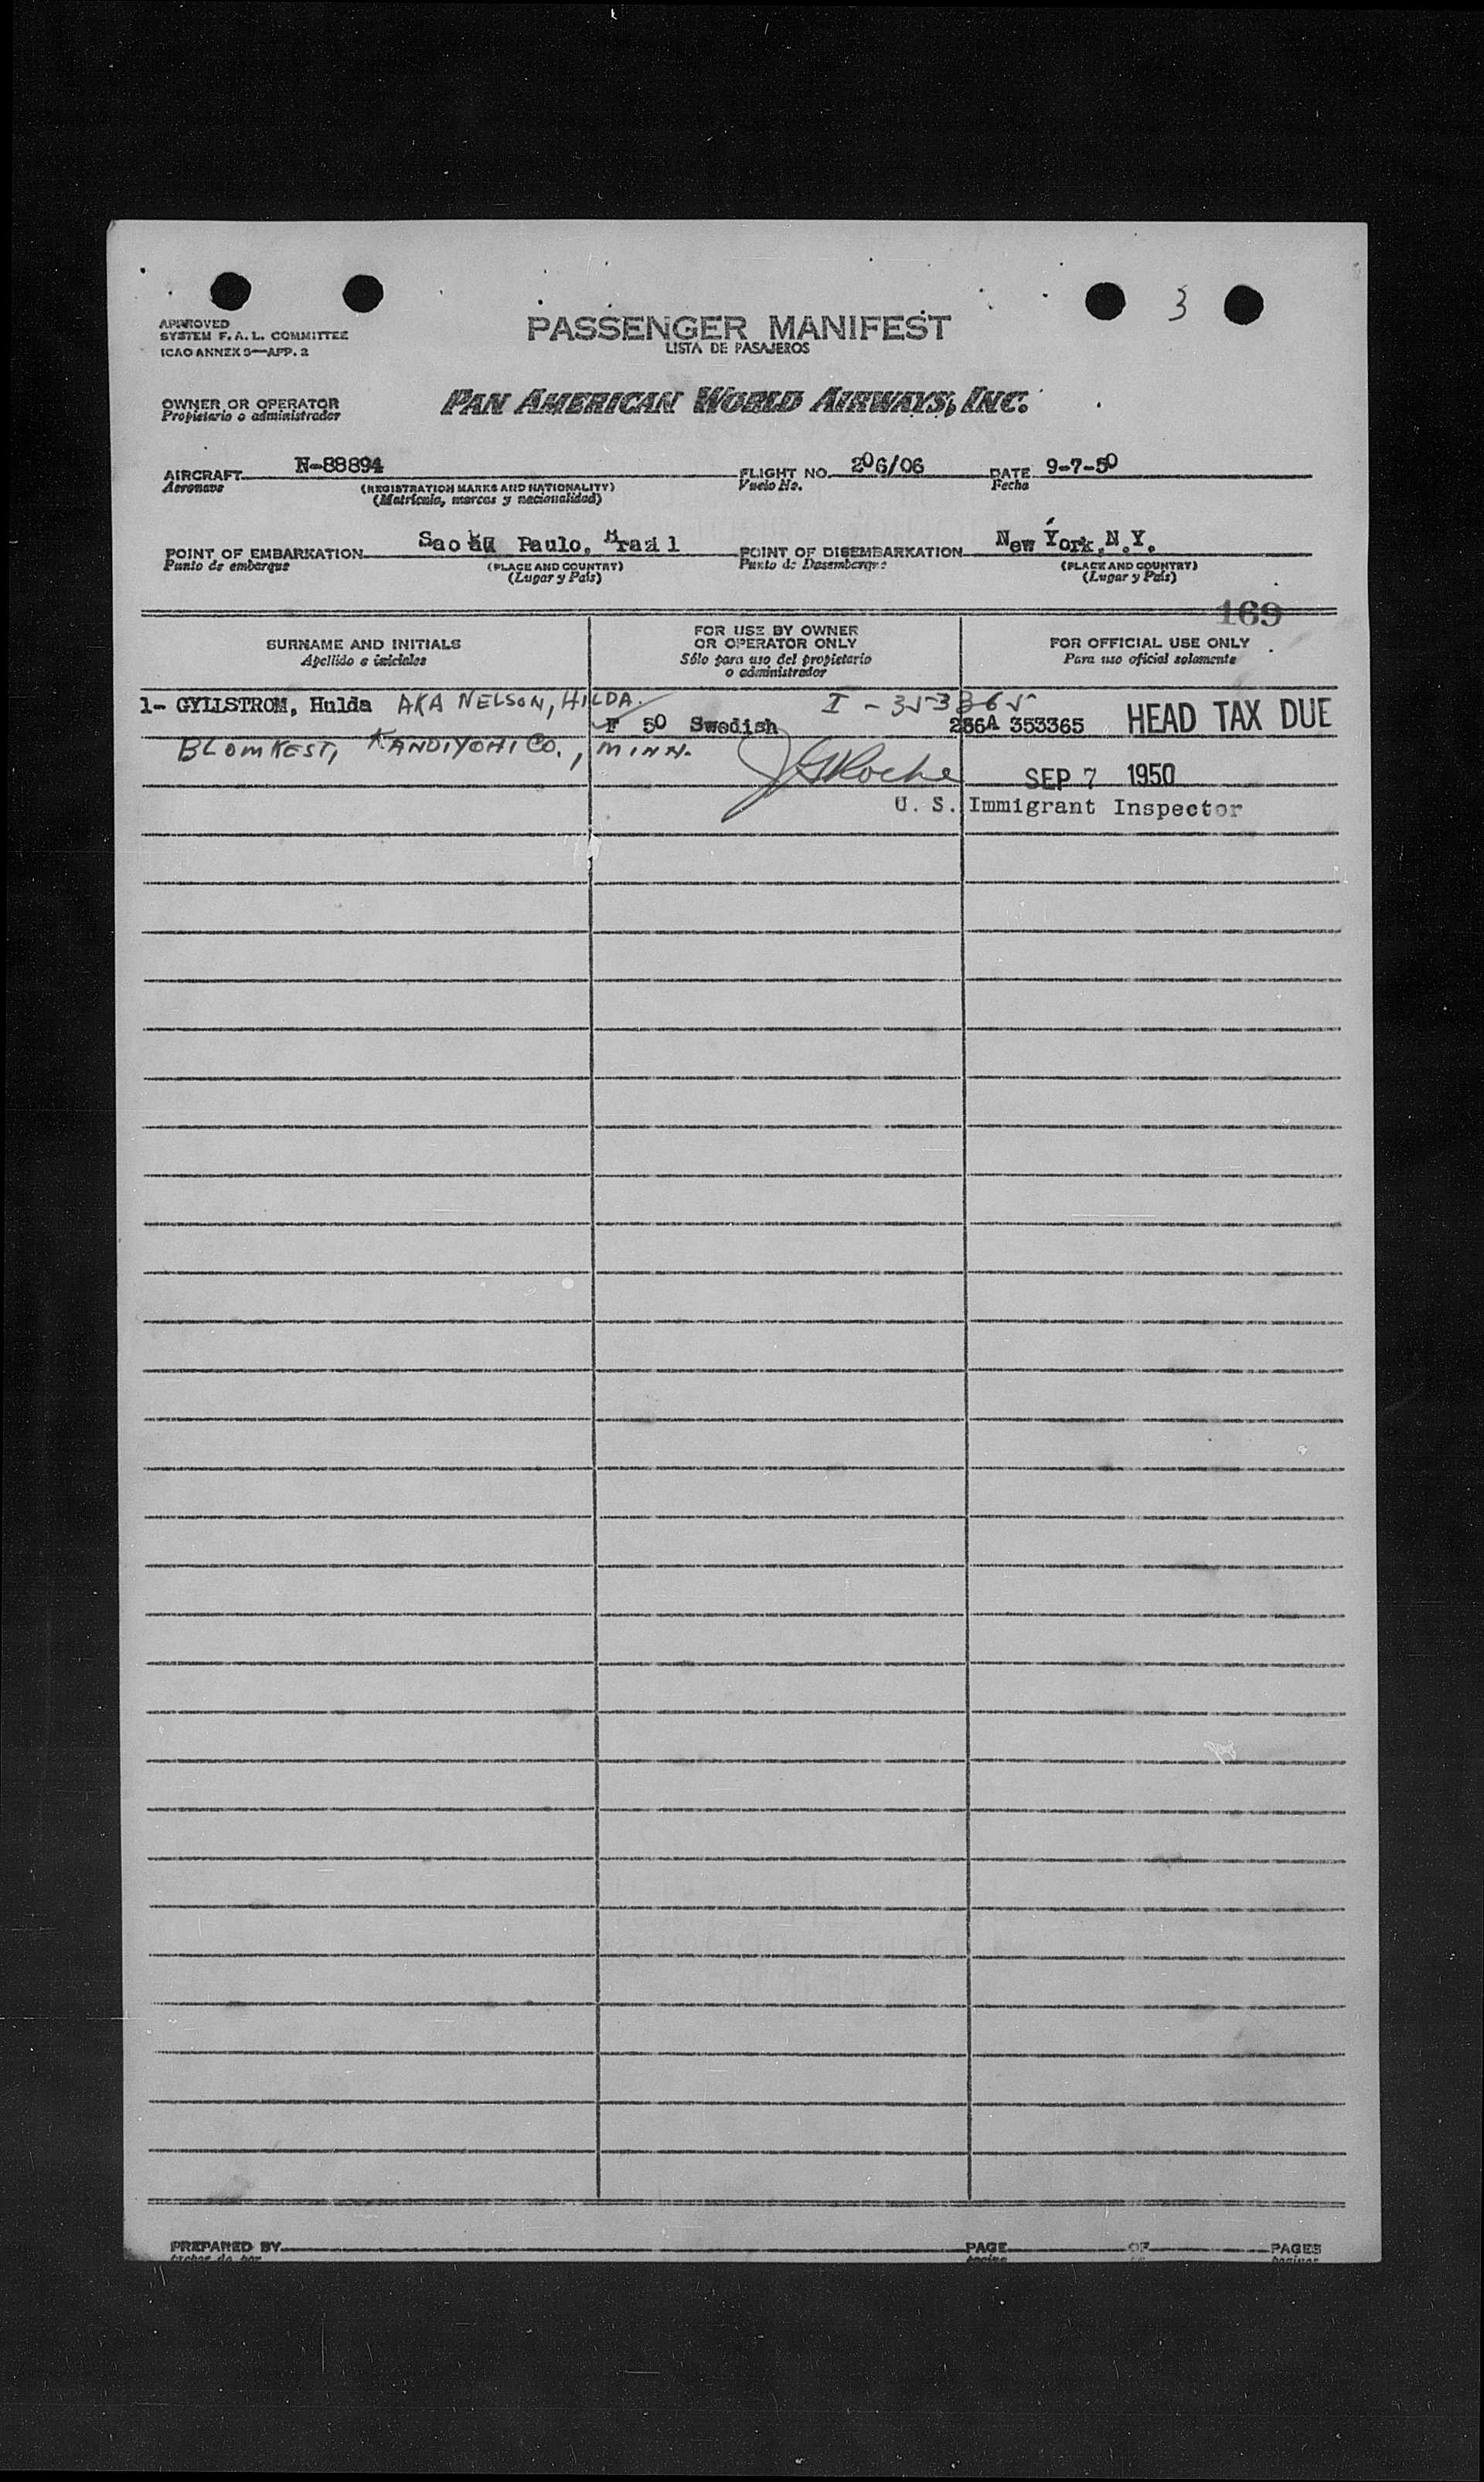 3
APPROVED
SYSTEM F. A. L. COMMITTEE
ICAO ANNEX 9—APP. 2
PASSENGER MANIFEST
LISTA DE PASAJEROS
OWNER OR OPERATOR
Propietario o administrador
PAN AMERICAN WORLD AIRWAYS, INC.
AIRCRAFT N-88894 FLIGHT NO. 206/06 DATE 9-7-50
Aeronave (REGISTRATION MARKS AND NATIONALITY) Vuelo No. Fecha
(Matrícula, marcas y nacionalidad)
POINT OF EMBARKATION Sao Paulo, Brazil POINT OF DISEMBARKATION New York, N.Y.
Punto de embarque (PLACE AND COUNTRY) Punto de Desembarque (PLACE AND COUNTRY)
(Lugar y País) (Lugar y País)
169
SURNAME AND INITIALS
Apellido e iniciales
FOR USE BY OWNER
OR OPERATOR ONLY
Sólo para uso del propietario
o administrador
FOR OFFICIAL USE ONLY
Para uso oficial solamente
1- GYLLSTROM, Hulda AKA NELSON, HILDA. I-353365
F 50 Swedish 256A 353365 HEAD TAX DUE
BLOMKEST, KANDIYOHI CO., MINN.
JGRoche SEP 7 1950
U. S. Immigrant Inspector
PREPARED BY PAGE OF PAGES